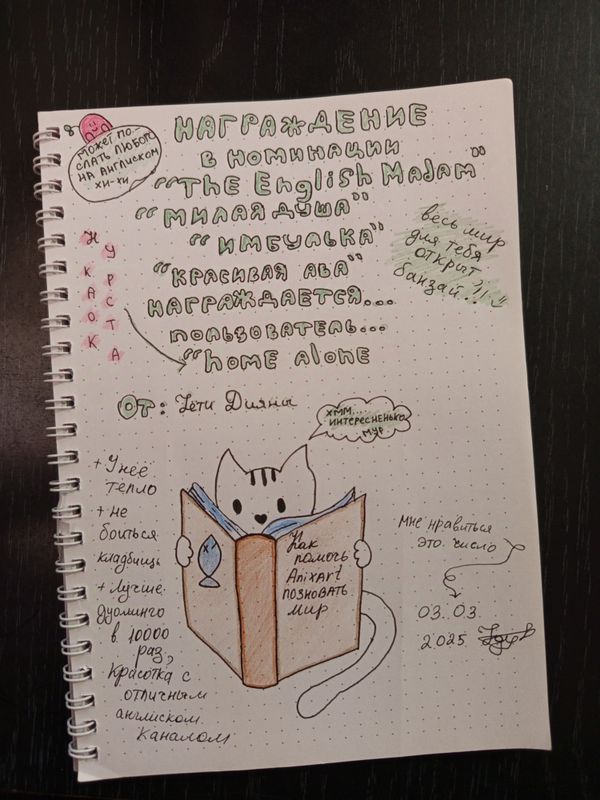 НАГРАЖДЕНИЕ
в номинации
"The English Madam"
"МИЛАЯ ДУША"
"ИМБУЛЬКА"
"КРАСИВАЯ АВА"
НАГРАЖДАЕТСЯ...
пользователь...
"home alone
МОЖЕТ ПО-
СЛАТЬ ЛЮБОГО
НА АНГЛИСКОМ
ХИ-ХИ
весь мир
для тебя
открыт
банзай...!!!
КРАСОТКА
ОТ: Тёти Дианы
ХММ...
ИНТЕРЕСНЕНЬКО
МУР
+ У неё
тепло
+ не
боиться
кладбищь
+ Лучше
дуолинго
в 10000
раз,
Красотка с
отличным
англиском
каналом
Как
помочь
Anixart
позновать
мир
мне нравиться
это число
03.03.
2025